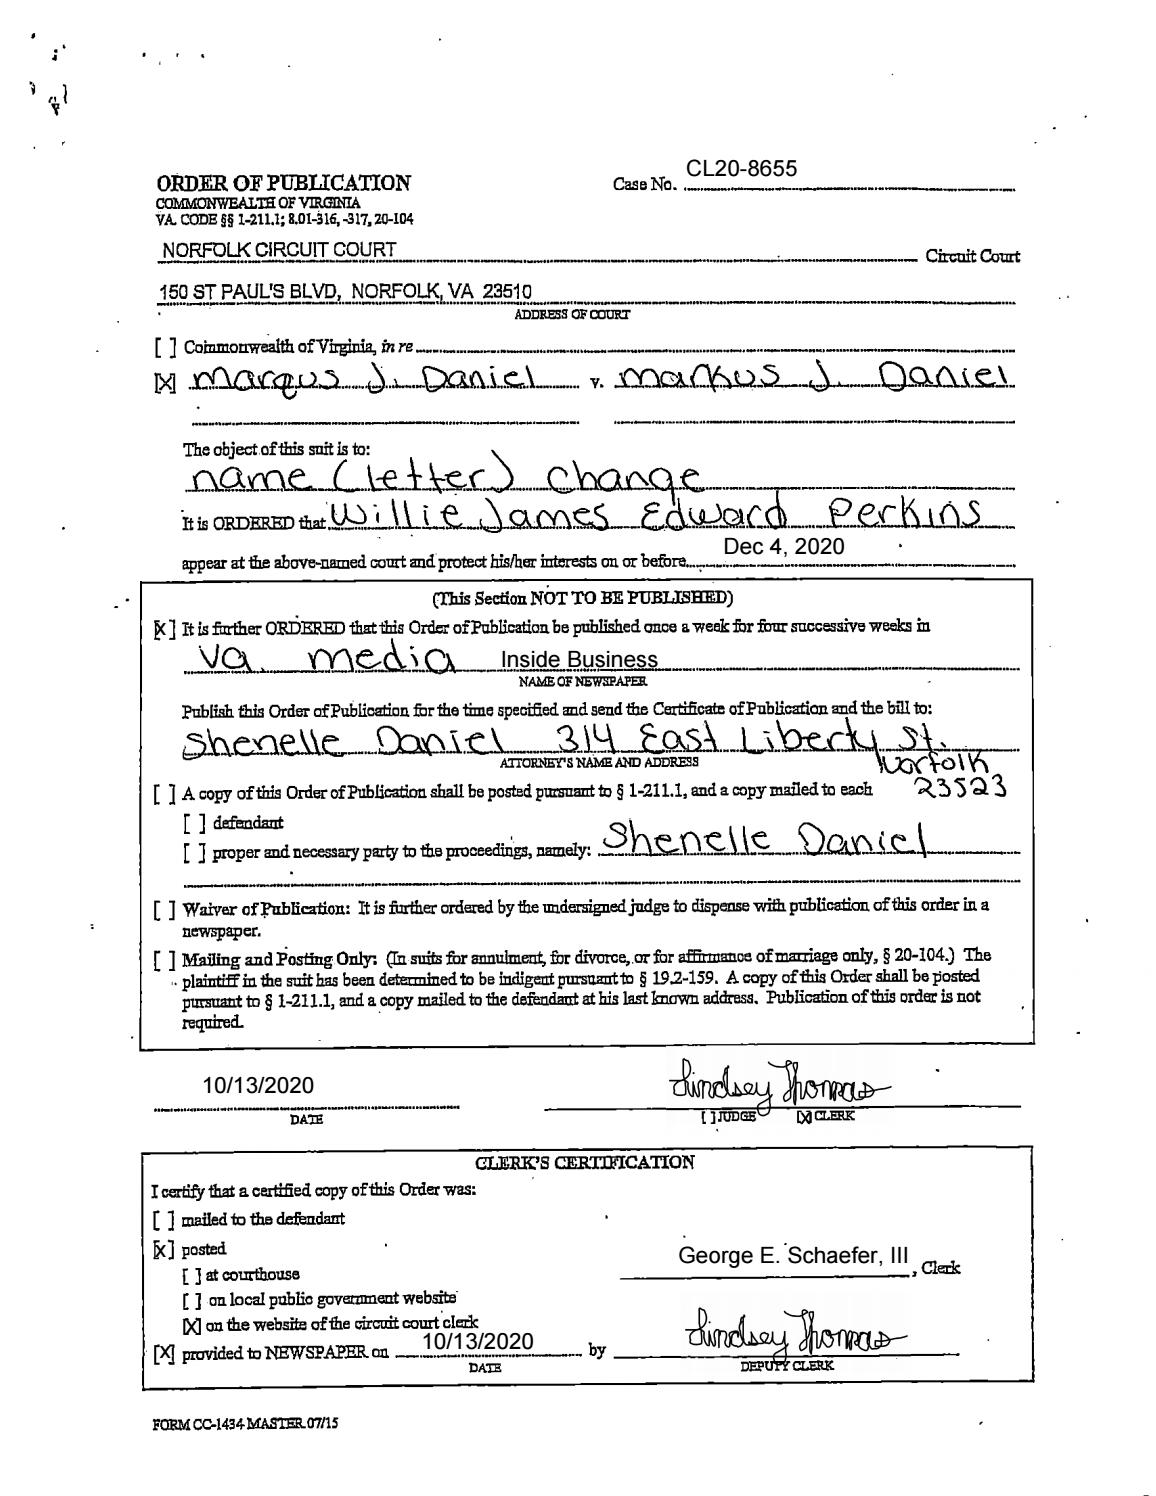 Case No. CL20-8655
ORDER OF PUBLICATION
COMMONWEALTH OF VIRGINIA
VA. CODE §§ 1-211.1; 8.01-316, -317, 20-104
NORFOLK CIRCUIT COURT Circuit Court
150 ST PAUL'S BLVD, NORFOLK, VA 23510
ADDRESS OF COURT
[ ] Commonwealth of Virginia, in re
[X] Marqus J. Daniel v. Markus J. Daniel
The object of this suit is to:
name (letter) change
It is ORDERED that Willie James Edward Perkins
appear at the above-named court and protect his/her interests on or before Dec 4, 2020
(This Section NOT TO BE PUBLISHED)
[X] It is further ORDERED that this Order of Publication be published once a week for four successive weeks in
Va. media Inside Business
NAME OF NEWSPAPER
Publish this Order of Publication for the time specified and send the Certificate of Publication and the bill to:
Shenelle Daniel 314 East Liberty St.
ATTORNEY'S NAME AND ADDRESS Norfolk
[ ] A copy of this Order of Publication shall be posted pursuant to § 1-211.1, and a copy mailed to each 23523
[ ] defendant
[ ] proper and necessary party to the proceedings, namely: Shenelle Daniel
[ ] Waiver of Publication: It is further ordered by the undersigned judge to dispense with publication of this order in a
newspaper.
[ ] Mailing and Posting Only: (In suits for annulment, for divorce, or for affirmance of marriage only, § 20-104.) The
plaintiff in the suit has been determined to be indigent pursuant to § 19.2-159. A copy of this Order shall be posted
pursuant to § 1-211.1, and a copy mailed to the defendant at his last known address. Publication of this order is not
required.
10/13/2020 Lindsey Thomas
DATE [ ] JUDGE [X] CLERK
CLERK'S CERTIFICATION
I certify that a certified copy of this Order was:
[ ] mailed to the defendant
[X] posted
George E. Schaefer, III, Clerk
[ ] at courthouse
[ ] on local public government website
[X] on the website of the circuit court clerk
[X] provided to NEWSPAPER on 10/13/2020 by Lindsey Thomas
DATE DEPUTY CLERK
FORM CC-1434 MASTER 07/15